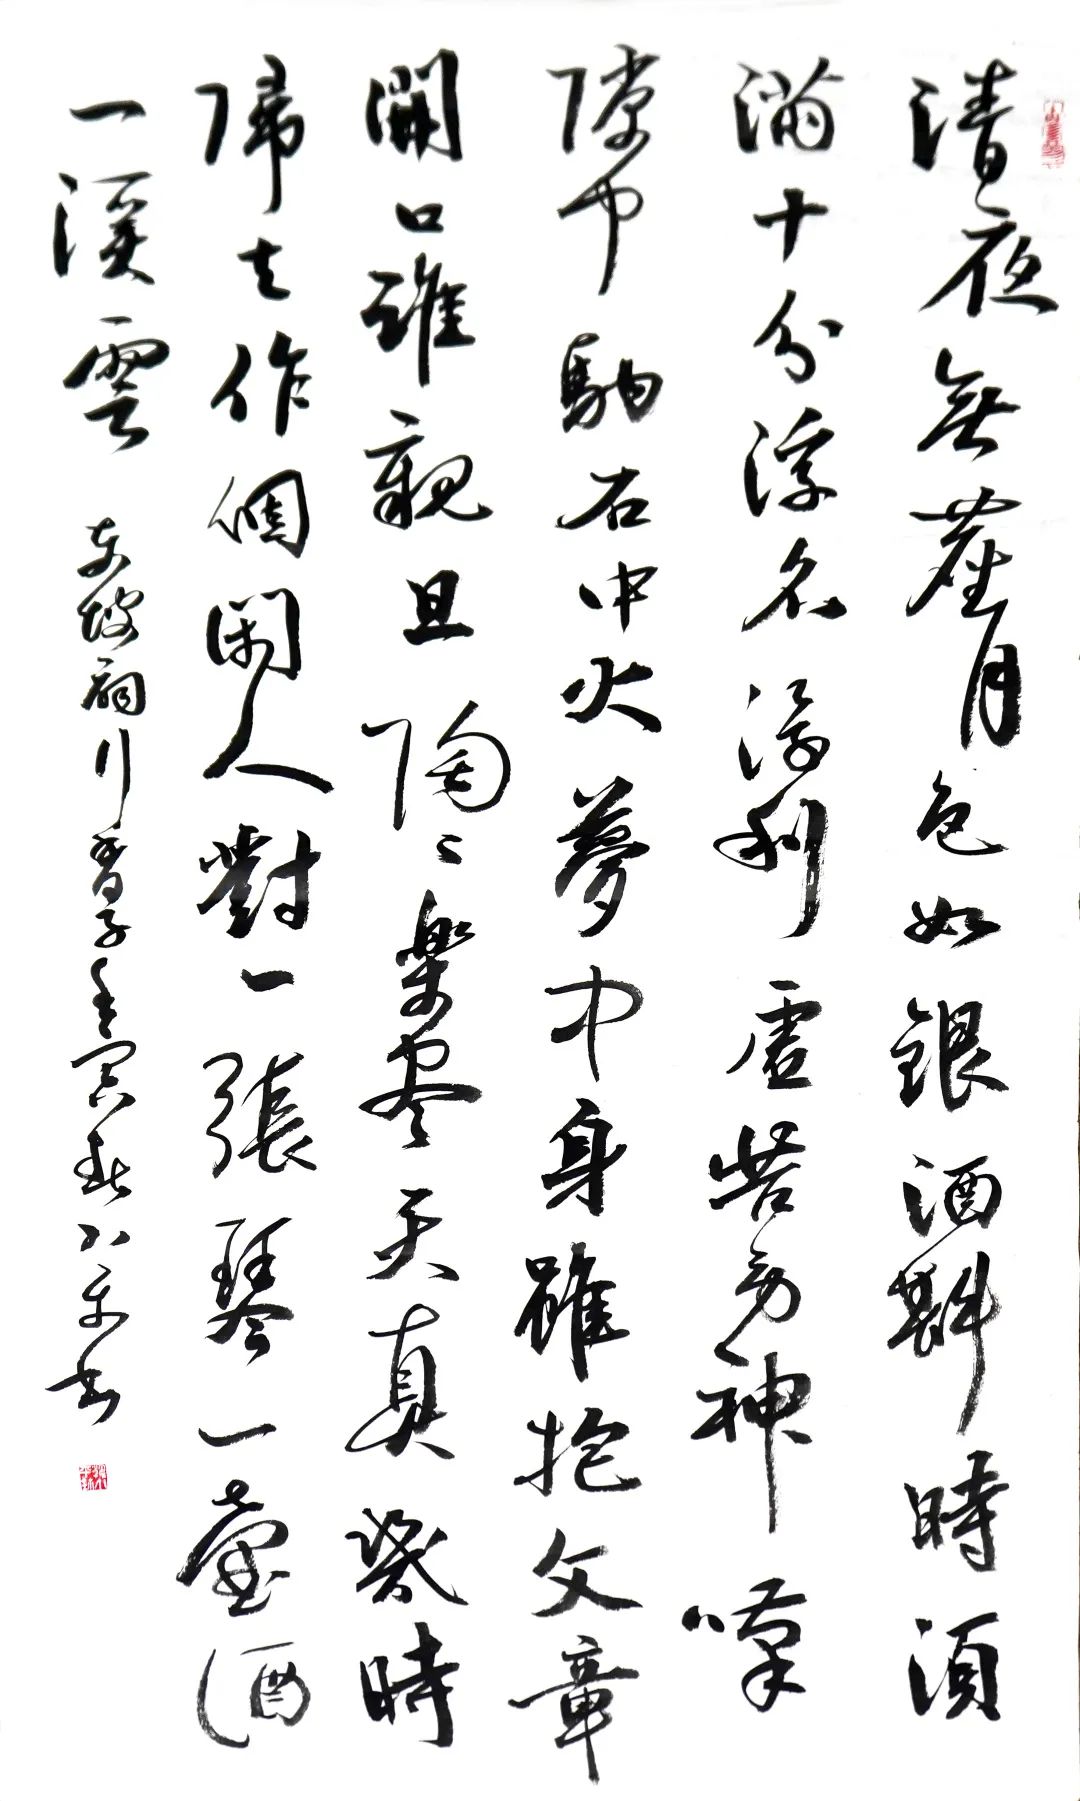 清夜無塵月色如銀酒斟時須
滿十分浮名浮利虛苦勞神嘆
隙中駒石中火夢中身雖抱文章
開口誰親且陶〻樂盡天真幾時
歸去作個閑人對一張琴一壺酒
一溪雲
東坡詞行香子